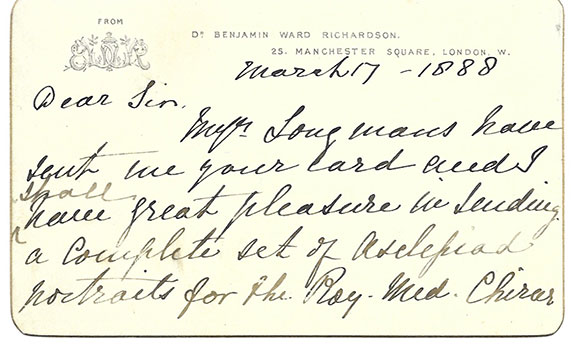 FROM
Dr BENJAMIN WARD RICHARDSON.
25, MANCHESTER SQUARE, LONDON, W.
March 17 - 1888
Dear Sir.
Messrs Longmans have
sent me your card and I
shall
have great pleasure in sending
a complete set of Asclepiad
portraits for the Roy. Med. Chirur